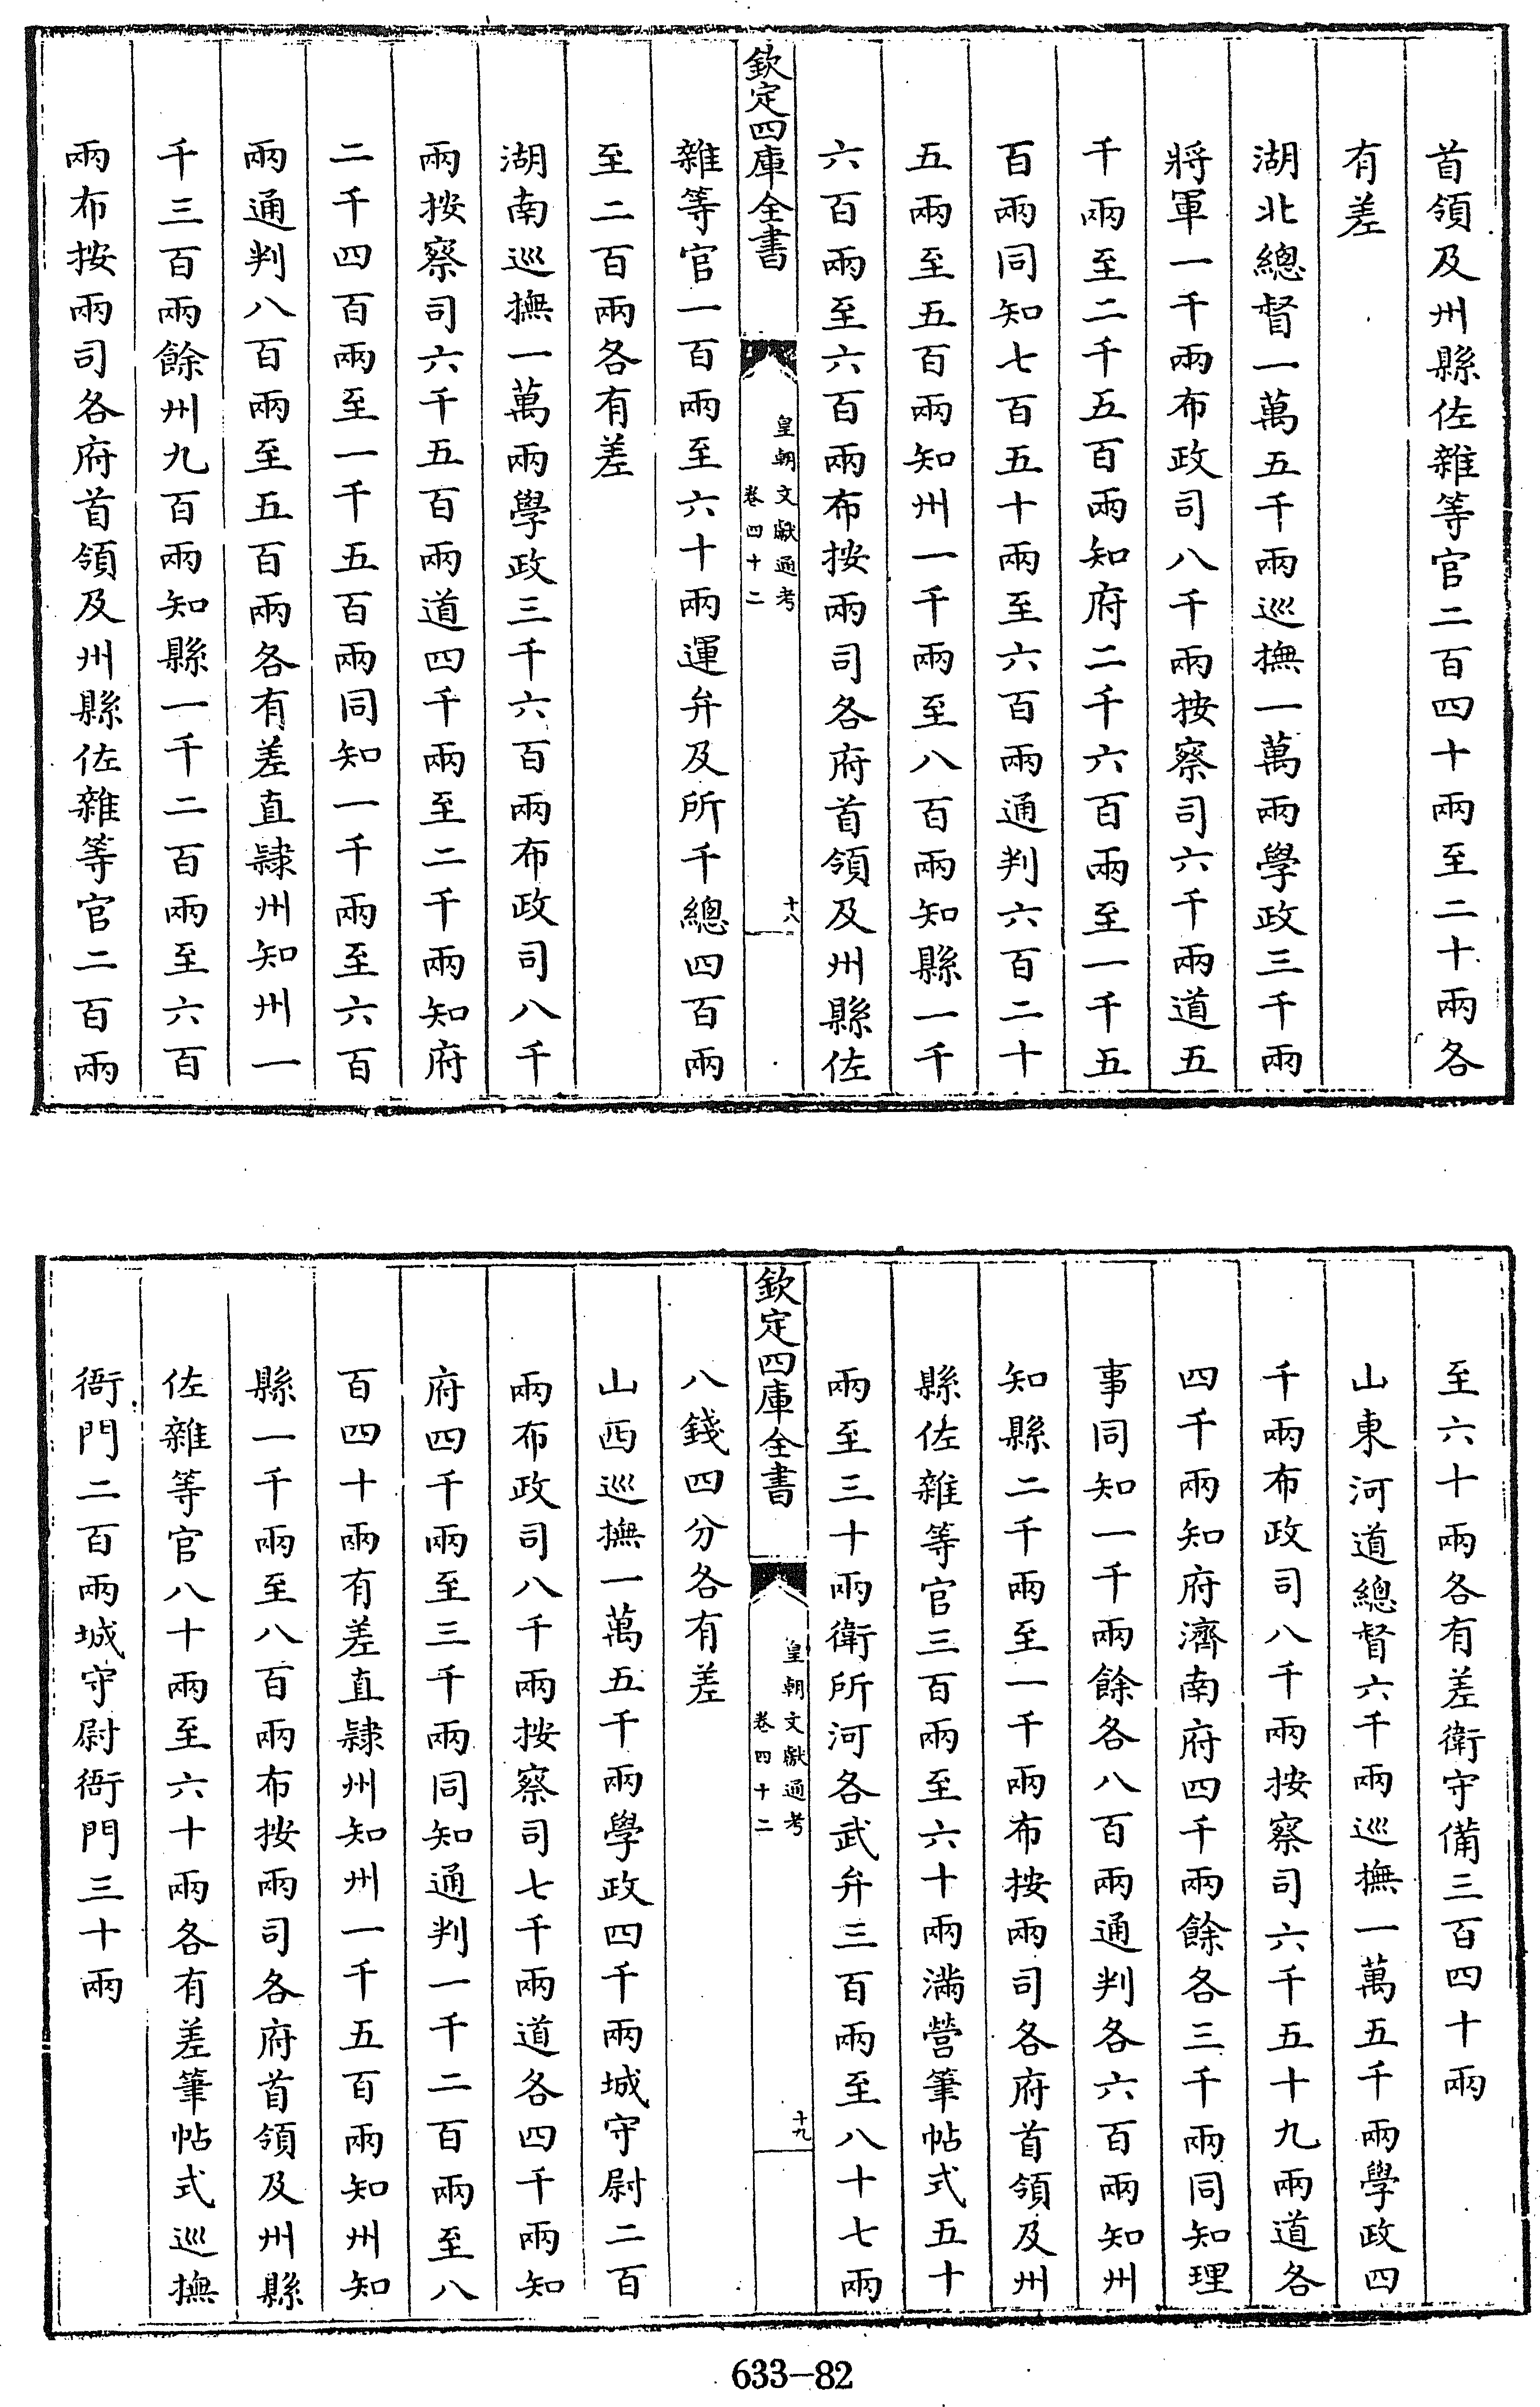 首領及州縣佐雜等官二百四十兩至二十兩各
有差
湖北總督一萬五千兩巡撫一萬兩學政三千兩
將軍一千兩布政司八千兩按察司六千兩道五
千兩至二千五百兩知府二千六百兩至一千五
百兩同知七百五十兩至六百兩通判六百二十
五兩至五百兩知州一千兩至八百兩知縣一千
六百兩至六百兩布按兩司各府首領及州縣佐
欽定四庫全書
皇朝文獻通考
卷四十二
十八
雜等官一百兩至六十兩運弁及所千總四百兩
至二百兩各有差
湖南巡撫一萬兩學政三千六百兩布政司八千
兩按察司六千五百兩道四千兩至二千兩知府
二千四百兩至一千五百兩同知一千兩至六百
兩通判八百兩至五百兩各有差直隸州知州一
千三百兩餘州九百兩知縣一千二百兩至六百
兩布按兩司各府首領及州縣佐雜等官二百兩
至六十兩各有差衛守備三百四十兩
山東河道總督六千兩巡撫一萬五千兩學政四
千兩布政司八千兩按察司六千五十九兩道各
四千兩知府濟南府四千兩餘各三千兩同知理
事同知一千兩餘各八百兩通判各六百兩知州
知縣二千兩至一千兩布按兩司各府首領及州
縣佐雜等官三百兩至六十兩滿營筆帖式五十
兩至三十兩衛所河各武弁三百兩至八十七兩
欽定四庫全書
皇朝文獻通考
卷四十二
十九
八錢四分各有差
山西巡撫一萬五千兩學政四千兩城守尉二百
兩布政司八千兩按察司七千兩道各四千兩知
府四千兩至三千兩同知通判一千二百兩至八
百四十兩有差直隸州知州一千五百兩知州知
縣一千兩至八百兩布按兩司各府首領及州縣
佐雜等官八十兩至六十兩各有差筆帖式巡撫
衙門二百兩城守尉衙門三十兩
633-82